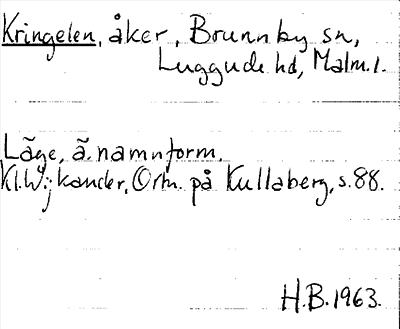 Kringelen, åker, Brunnby sn,
Luggude hd, Malm. l.
Läge, ä. namnform.
Kl. Wikander, Ortn. på Kullaberg, s. 88.
H.B. 1963.